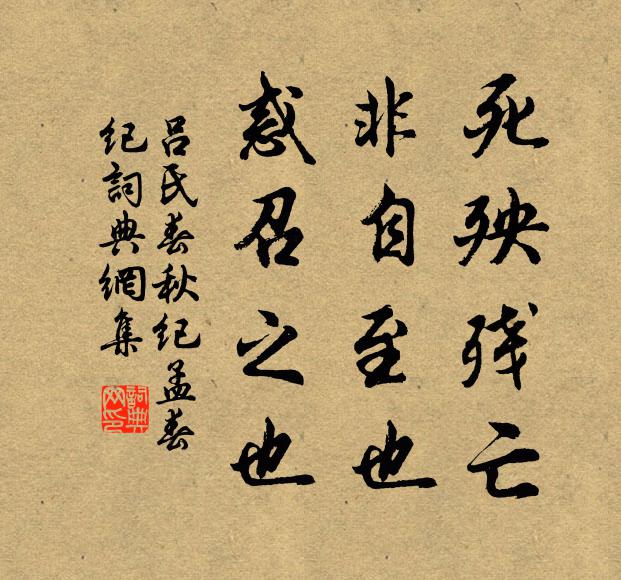 死殃残亡
非自至也
惑召之也
吕氏春秋纪孟春
纪詞典網集
詞典网印